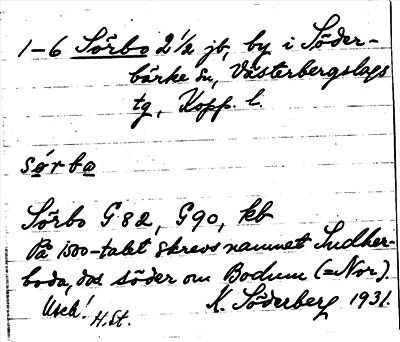 1–6 Sörbo 2 1/2 jb, by i Söder-
bärke sn, Västerbergslags
tg, Kopp. l.
sǿrba
Sörbo G 82, G 90, kb
På 1500-talet skrevs namnet Sudher-
boda, dvs söder om Bodum (= Nor).
Usch! H. St. K. Söderberg 1931.